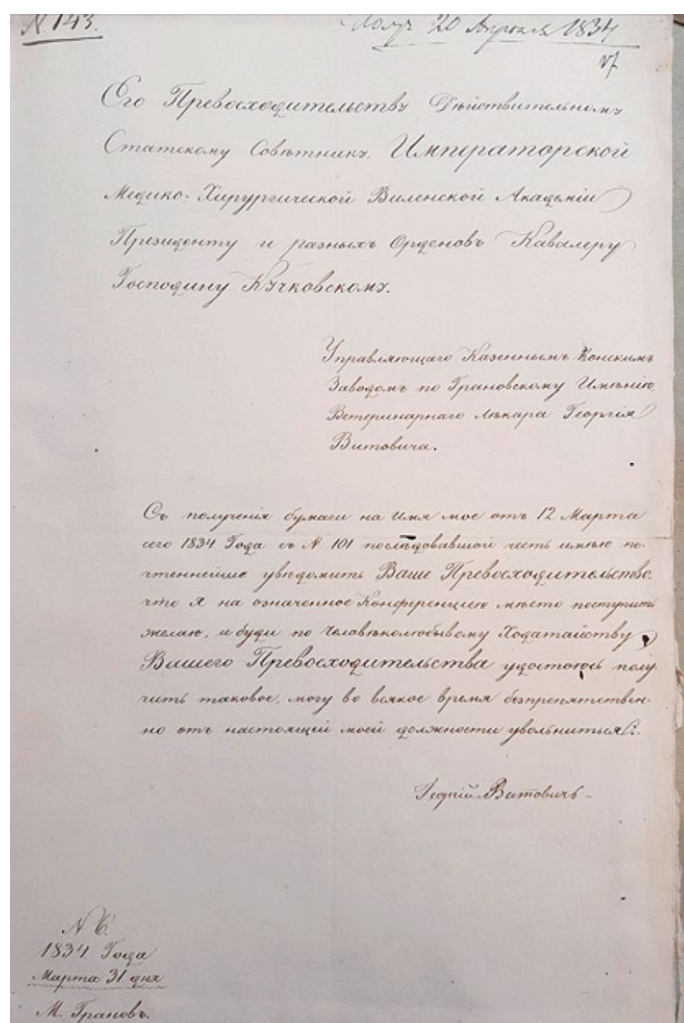 N. 143.
Получ 20 Апреля 1834
Его Превосходительству Дѣйствительному
Статскому Совѣтнику Императорской
Медико-Хирургической Виленской Академіи
Президенту и разныхъ Орденовъ Кавалеру
Господину Кучковскому.
Управляющаго Казеннымъ Конскимъ
Заводомъ по Грановскому Имѣнію
Ветеринарнаго лѣкаря Георгія
Витовича.
Съ полученія бумаги на имя мое отъ 12 Марта
сего 1834 Года съ N 101 послѣдовавшой честь имѣю по-
чтеннейше увѣдомить Ваше Превосходительство,
что я на означенное Конференціею мѣсто поступить
желаю, и буди по Человѣколюбивому Ходатайству
Вашего Превосходительства удостоюсь полу-
чить таковое, могу во всякое время безпрепятствен-
но отъ настоящей моей должности увольниться.
Георгій Витовичъ
N 6.
1834 Года
Марта 31 дня
М. Грановъ.